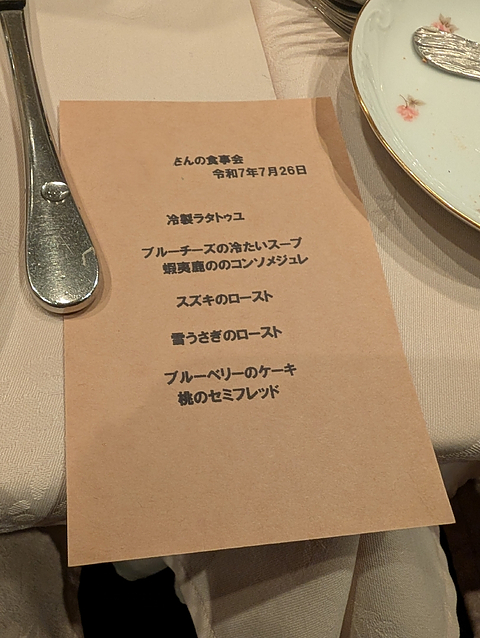 さんの食事会
令和7年7月26日
冷製ラタトゥユ
ブルーチーズの冷たいスープ
蝦夷鹿ののコンソメジュレ
スズキのロースト
雪うさぎのロースト
ブルーベリーのケーキ
桃のセミフレッド